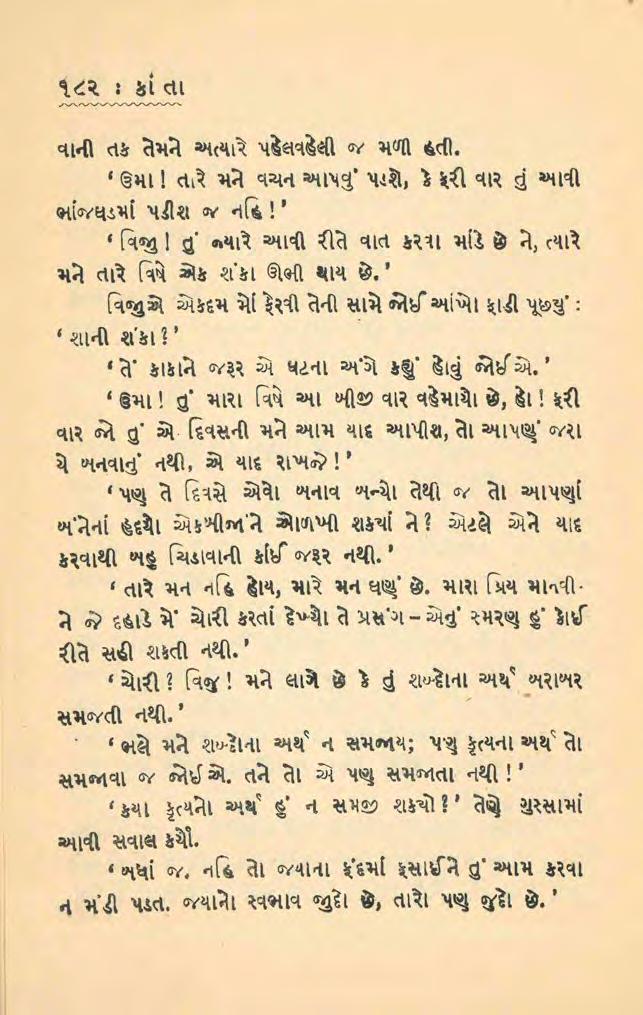 ૧૮૨ : કાંતા
વાની તક તેમને અત્યારે પહેલવહેલી જ મળી હતી.
‘ ઉમા ! તારે મને વચન આપવું પડશે, કે ફરી વાર તું આવી
ભાંજઘડમાં પડીશ જ નહિ ! ’
‘ વિજુ ! તું જ્યારે આવી રીતે વાત કરવા માંડે છે ને, ત્યારે
મને તારે વિષે એક શંકા ઊભી થાય છે. ’
વિજુએ એકદમ મોં ફેરવી તેની સામે જોઈ આંખો ફાડી પૂછ્યું :
‘ શાની શંકા ? ’
‘ તેં કાકાને જરૂર એ ઘટના અંગે કહ્યું હોવું જોઈએ. ’
‘ ઉમા ! તું મારા વિષે આ બીજી વાર વહેમાયો છે, હો ! ફરી
વાર જો તું એ દિવસની મને આમ યાદ આપીશ, તો આપણું જરા
યે બનવાનું નથી, એ યાદ રાખજે ! ’
‘ પણ તે દિવસે એવો બનાવ બન્યો તેથી જ તો આપણાં
બંનેનાં હૃદયો એકબીજાંને ઓળખી શક્યાં ને ? એટલે એને યાદ
કરવાથી બહુ ચિડાવાની કાંઈ જરૂર નથી. ’
‘ તારે મન નહિ હોય, મારે મન ઘણું છે. મારા પ્રિય માનવી-
ને જે દહાડે મેં ચોરી કરતાં દેખ્યો તે પ્રસંગ – એનું સ્મરણ હું કોઈ
રીતે સહી શકતી નથી. ’
‘ ચોરી ? વિજુ ! મને લાગે છે કે તું શબ્દોના અર્થ બરાબર
સમજતી નથી. ’
‘ ભલે મને શબ્દોના અર્થ ન સમજાય; પણ કૃત્યના અર્થ તો
સમજાવા જ જોઈએ. તને તો એ પણ સમજાતા નથી ! ’
‘ કયા કૃત્યનો અર્થ હું ન સમજી શક્યો ? ’ તેણે ગુસ્સામાં
આવી સવાલ કર્યો.
‘ બધાં જ. નહિ તો જયાના ફંદમાં ફસાઈને તું આમ કરવા
ન મંડી પડત. જયાનો સ્વભાવ જુદો છે, તારો પણ જુદો છે. ’